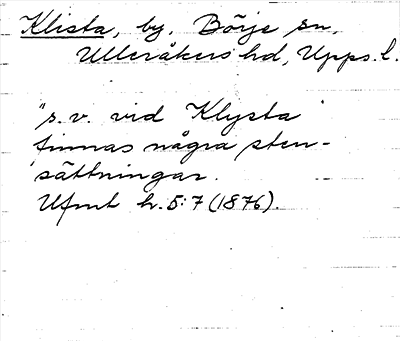 Klista, by, Börje sn,
Ulleråkers hd, Upps. l.
"s. v. vid Klysta
finnas några sten-
sättningar.
Ufmt h. 5:7 (1876).